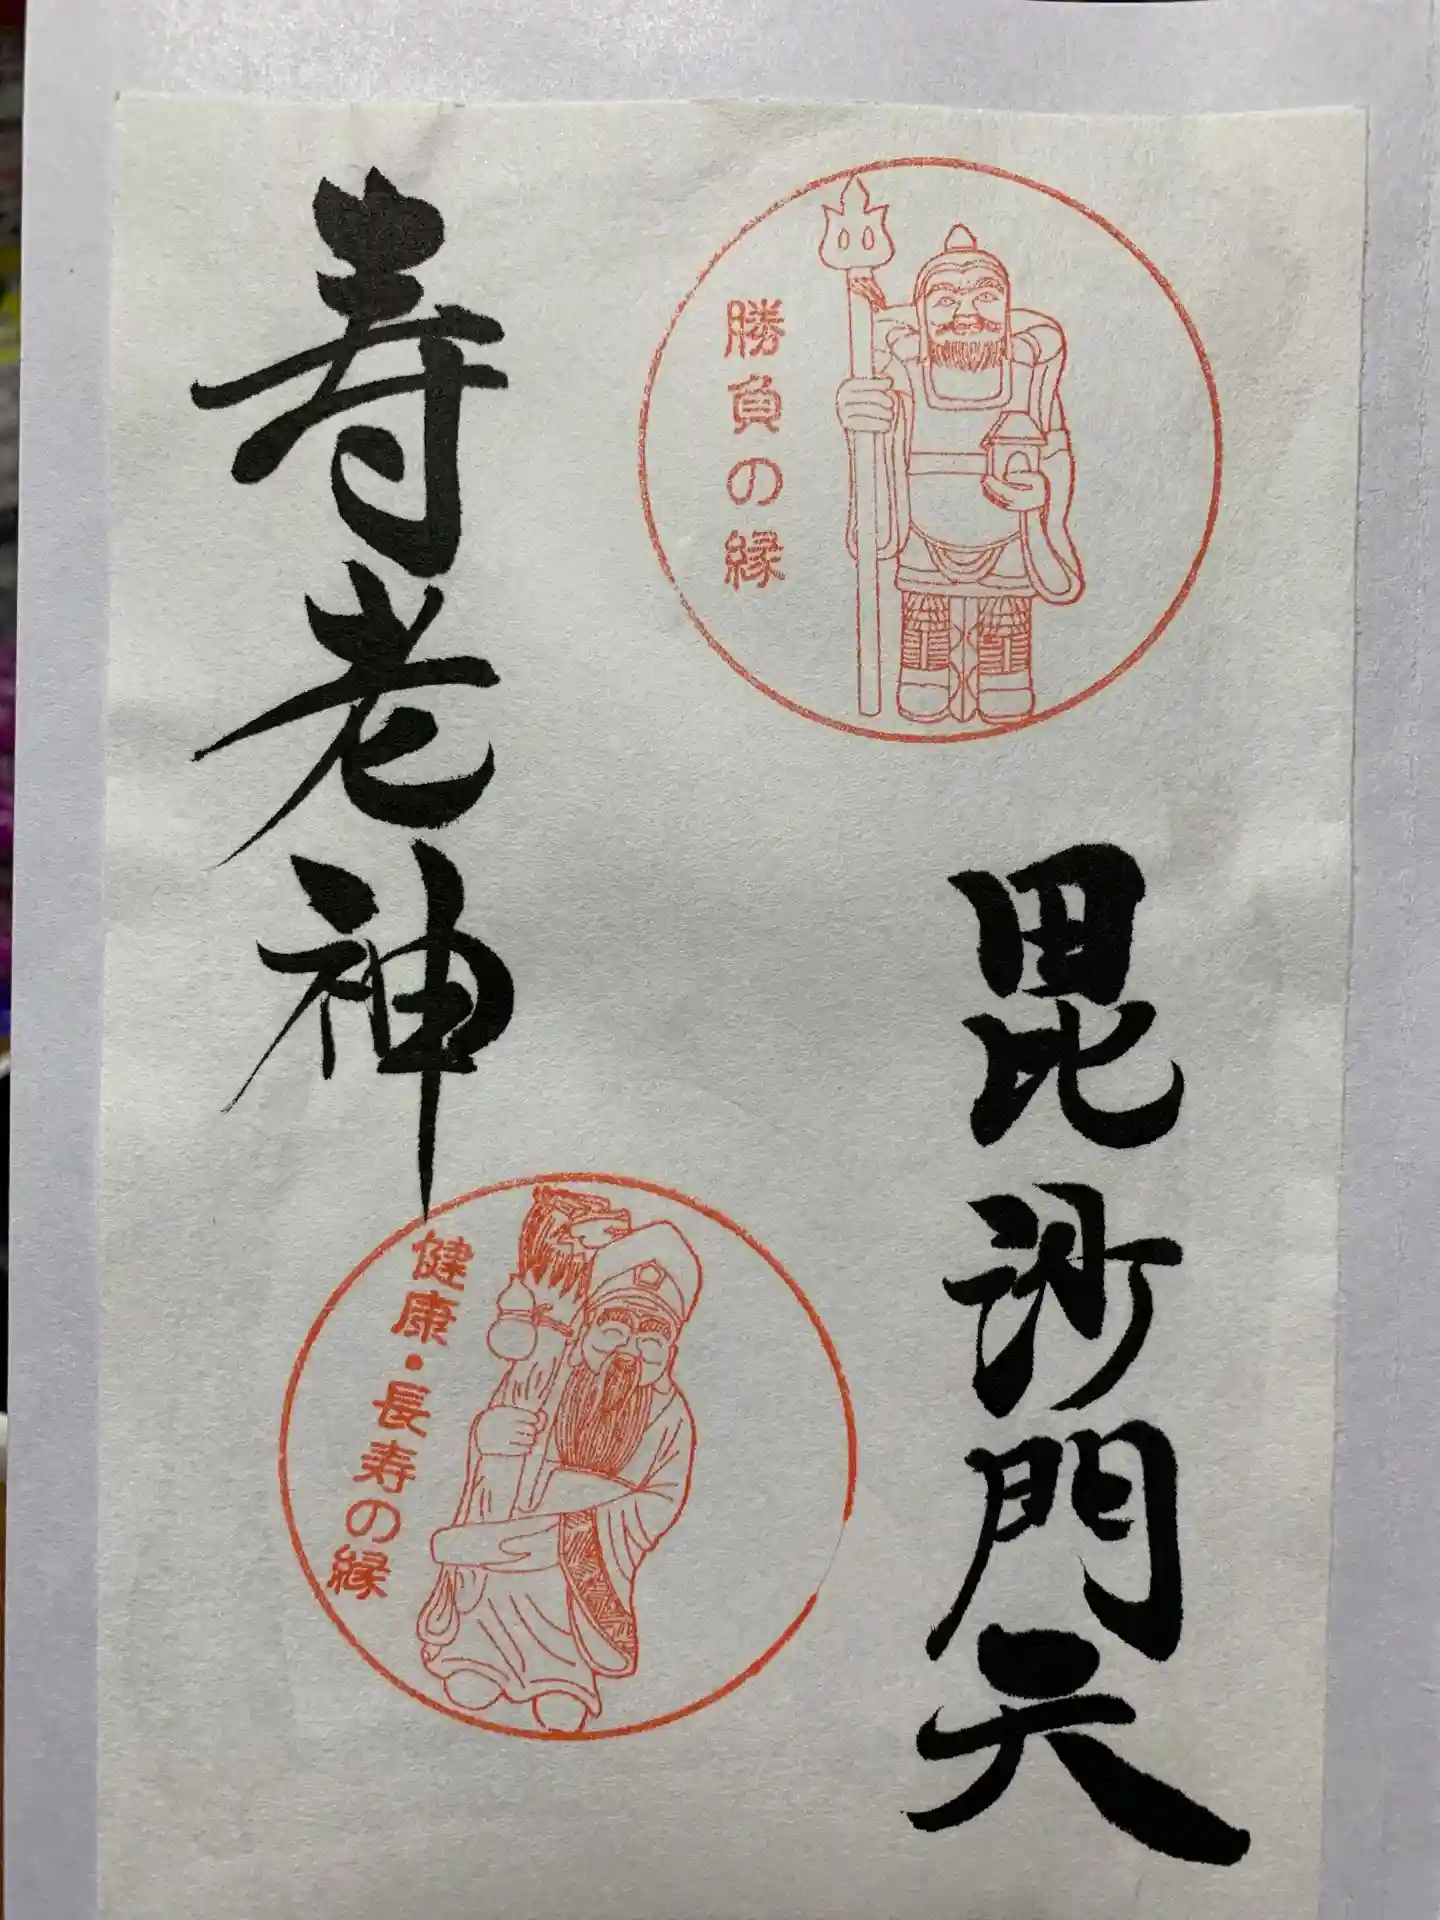 勝負の縁
毘沙門天
寿老神
健康・長寿の縁